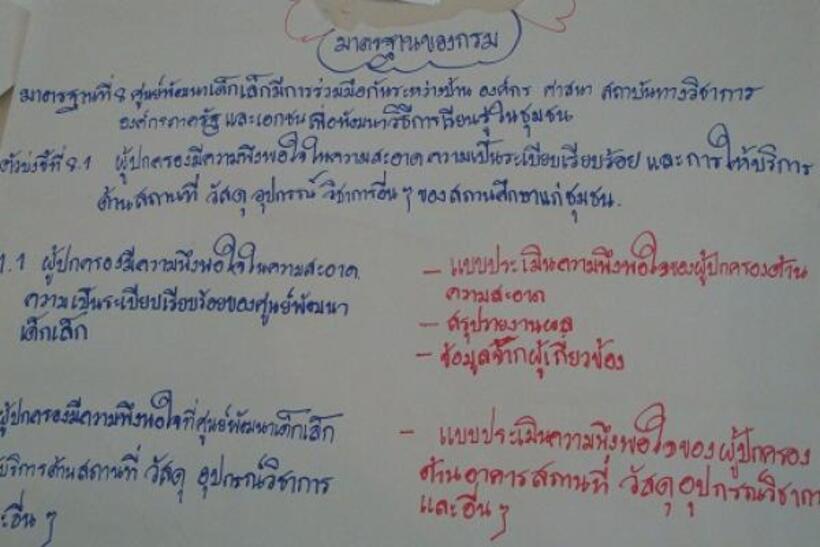 มาตรฐานของกรม
มาตรฐานที่ 8 ศูนย์พัฒนาเด็กเล็กมีการร่วมมือกันระหว่างบ้าน องค์กร ศาสนา สถาบันทางวิชาการ
องค์กรภาครัฐ และเอกชน เพื่อพัฒนาวิธีการเรียนรู้ในชุมชน
ตัวบ่งชี้ที่ 8.1 ผู้ปกครองมีความพึงพอใจในความสะอาด ความเป็นระเบียบเรียบร้อย และการให้บริการ
ด้านสถานที่ วัสดุ อุปกรณ์ วิชาการอื่น ๆ ของสถานศึกษาแก่ชุมชน.
1.1 ผู้ปกครองมีความพึงพอใจในความสะอาด
ความเป็นระเบียบเรียบร้อยของศูนย์พัฒนา
เด็กเล็ก
- แบบประเมินความพึงพอใจของผู้ปกครองด้าน
ความสะอาด
- สรุปรายงานผล
- ข้อมูลจากผู้เกี่ยวข้อง
ผู้ปกครองมีความพึงพอใจที่ศูนย์พัฒนาเด็กเล็ก
บริการด้านสถานที่ วัสดุ อุปกรณ์วิชาการ
และอื่น ๆ
- แบบประเมินความพึงพอใจของผู้ปกครอง
ด้านอาคารสถานที่ วัสดุอุปกรณ์วิชาการ
และอื่น ๆ